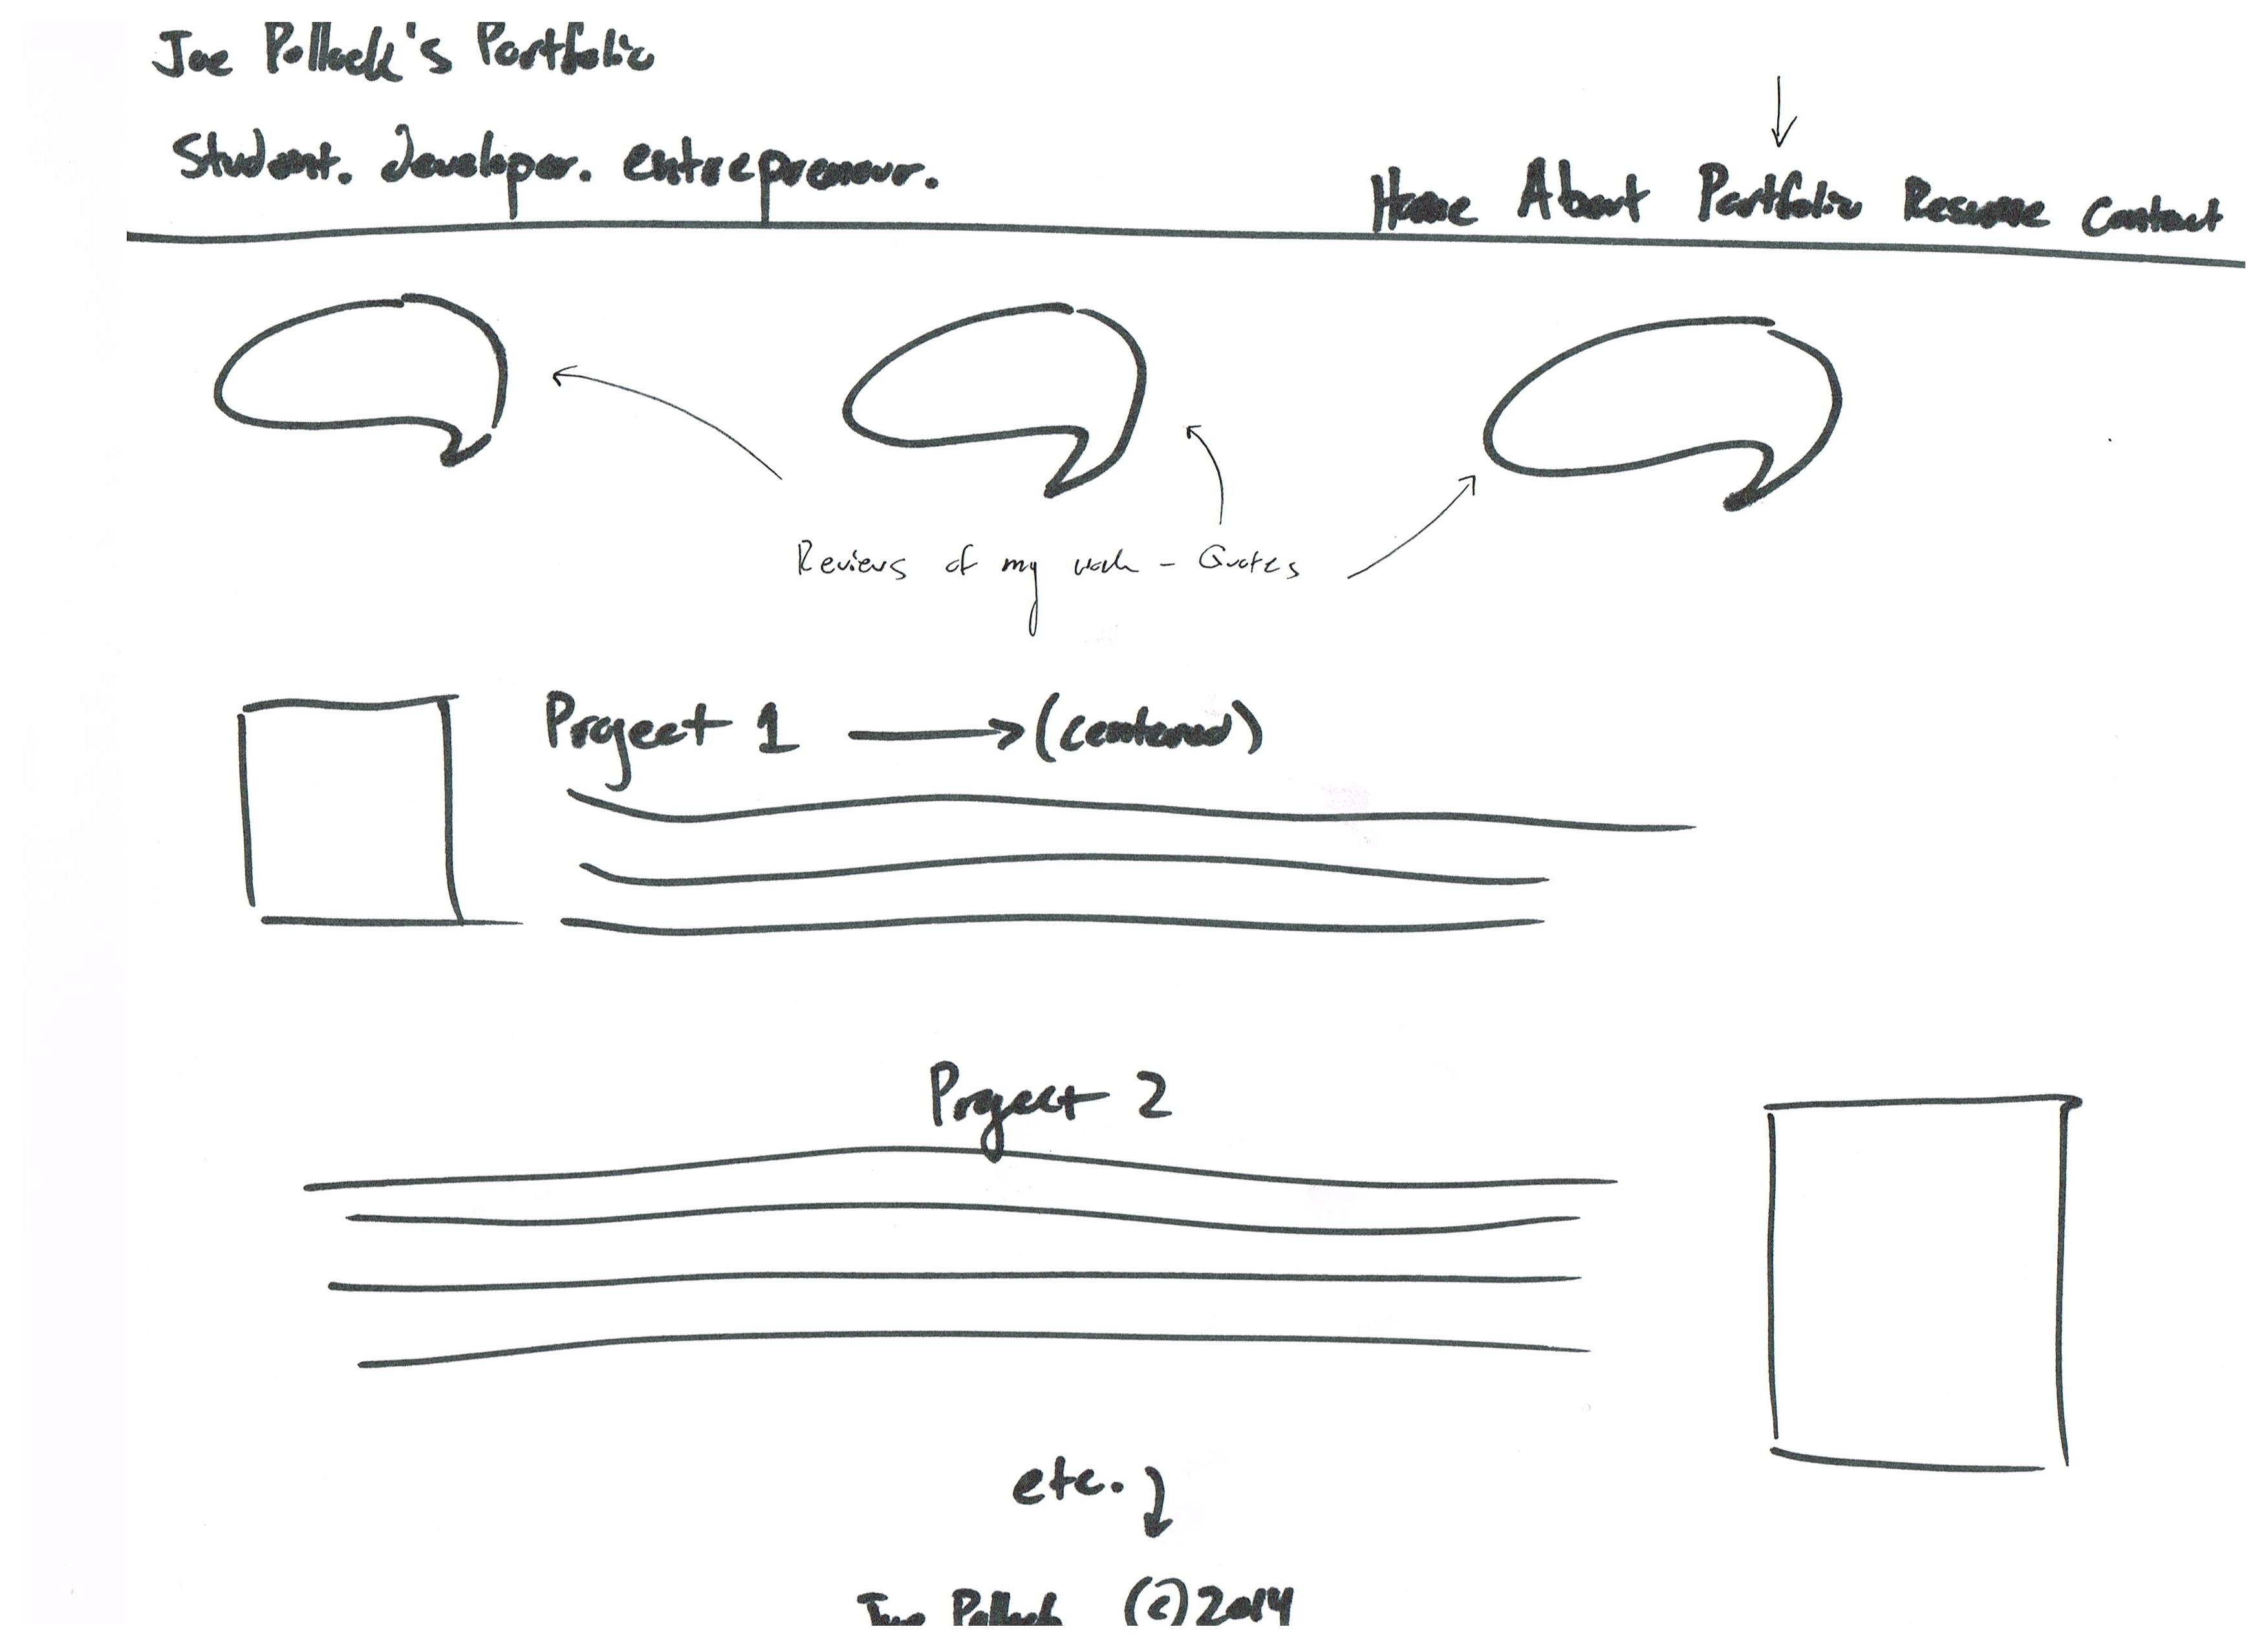 Joe Pollack's Portfolio
Student. developer. entrepreneur.
Home About Portfolio Resume Contact
Reviews of my work - Quotes
Project 1 (centered)
Project 2
etc.
Joe Pollack (c) 2014